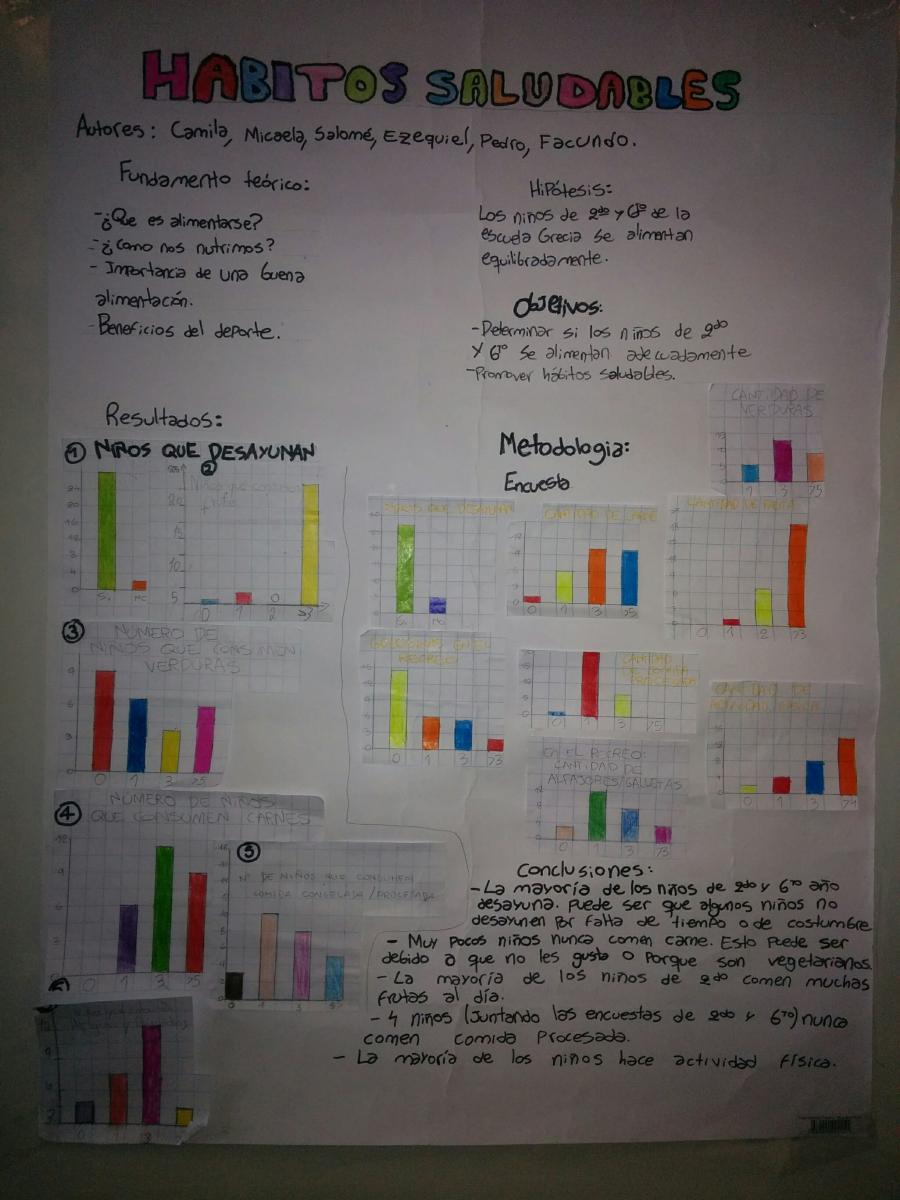 HABITOS SALUDABLES
Autores: Camila, Micaela, Salomé, Ezequiel, Pedro, Facundo.
Fundamento teórico:
-¿Que es alimentarse?
-¿Como nos nutrimos?
- Importancia de una buena
alimentación.
-Beneficios del deporte.
Hipótesis:
Los niños de 2do y 6to de la
escuela Grecia se alimentan
equilibradamente.
Objetivos:
-Determinar si los niños de 2do
y 6to se alimentan adecuadamente
-Promover hábitos saludables.
Resultados:
1 NIÑOS QUE DESAYUNAN
2
Niños que consumen
frutas
3 NÚMERO DE
NIÑOS QUE CONSUMEN
VERDURAS
0 1 3 >5
4 NÚMERO DE NIÑOS
QUE CONSUMEN CARNES
0 1 3 >5
5
Nº DE NIÑOS QUE CONSUMEN
COMIDA CONGELADA/PROCESADA
6
Metodologia:
Encuesta
CANTIDAD DE
VERDURAS
1 3 >5
NIÑOS QUE DESAYUNAN
CANTIDAD DE CARNE
0 1 3 >5
CANTIDAD DE FRUTA
0 1 2 >3
RECREO
0 1 3 >3
CANTIDAD
DE COMIDA
PROCESADA
0 1 3 >5
CANTIDAD DE
ACTIVIDAD FÍSICA
0 1 3 >4
EN EL RECREO:
CANTIDAD DE
ALFAJORES/GALLETAS
0 1 3 >3
Conclusiones:
-La mayoría de los niños de 2do y 6to año
desayuna. Puede ser que algunos niños no
desayunen por falta de tiempo o de costumbre
- Muy pocos niños nunca comen carne. Esto puede ser
debido a que no les gusta o porque son vegetarianos.
- La mayoría de los niños de 2do comen muchas
frutas al día.
- 4 niños (Juntando las encuestas de 2do y 6to) nunca
comen comida procesada.
- La mayoría de los niños hace actividad física.